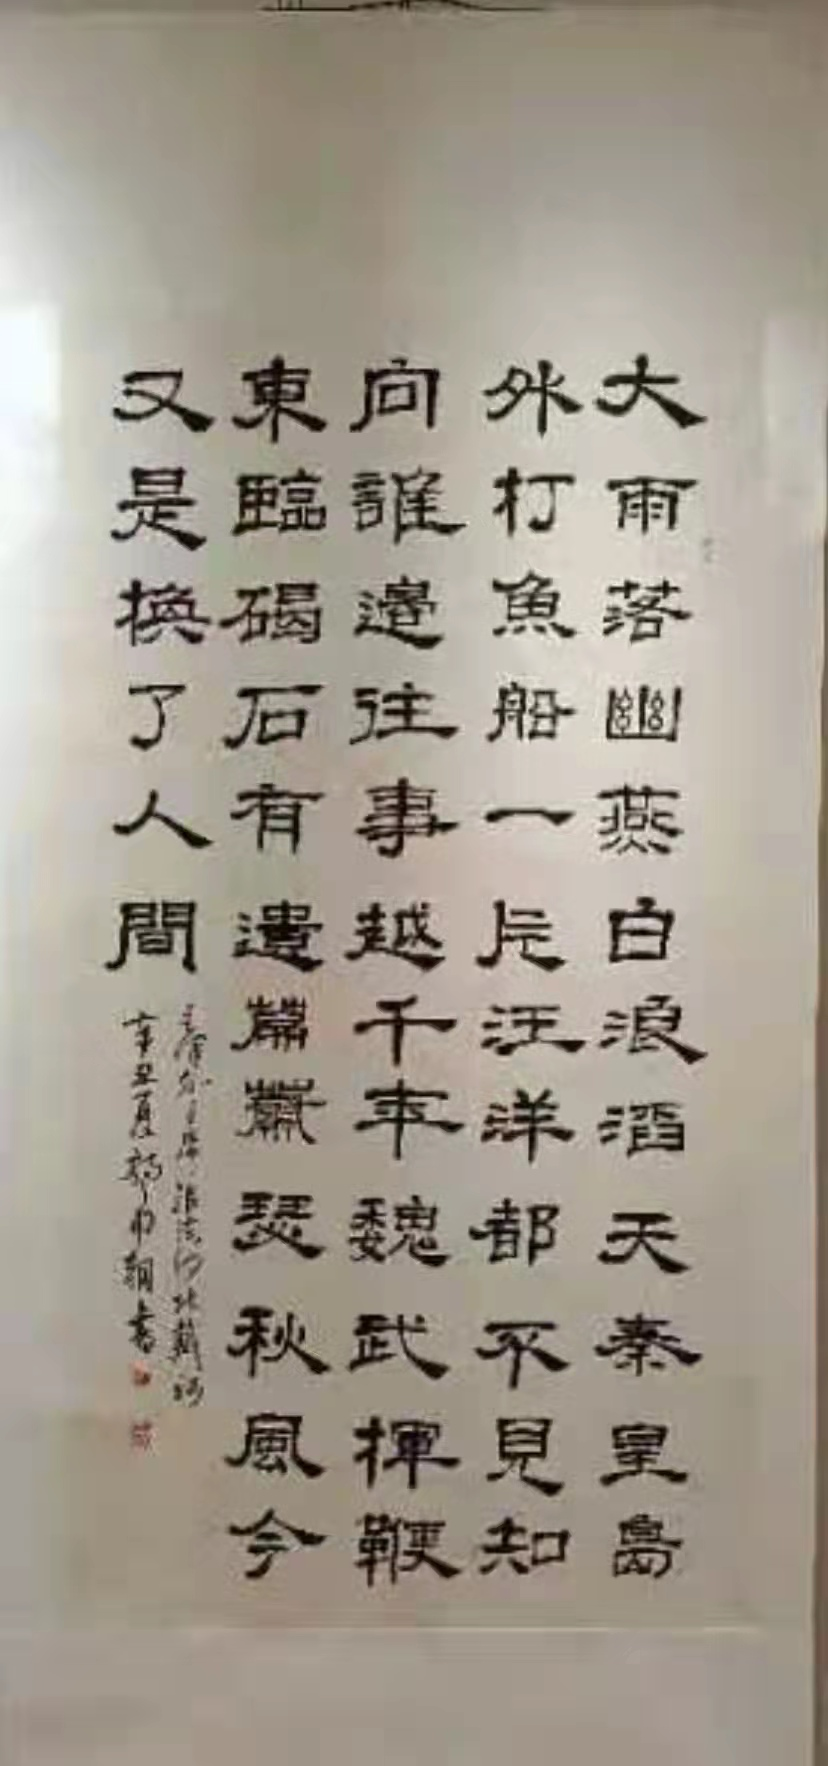 大雨落幽燕白浪滔天秦皇島
外打魚船一片汪洋都不見知
向誰邊往事越千年魏武揮鞭
東臨碣石有遺篇蕭瑟秋風今
又是換了人間
毛澤东主席浪淘沙北戴河
辛丑夏書